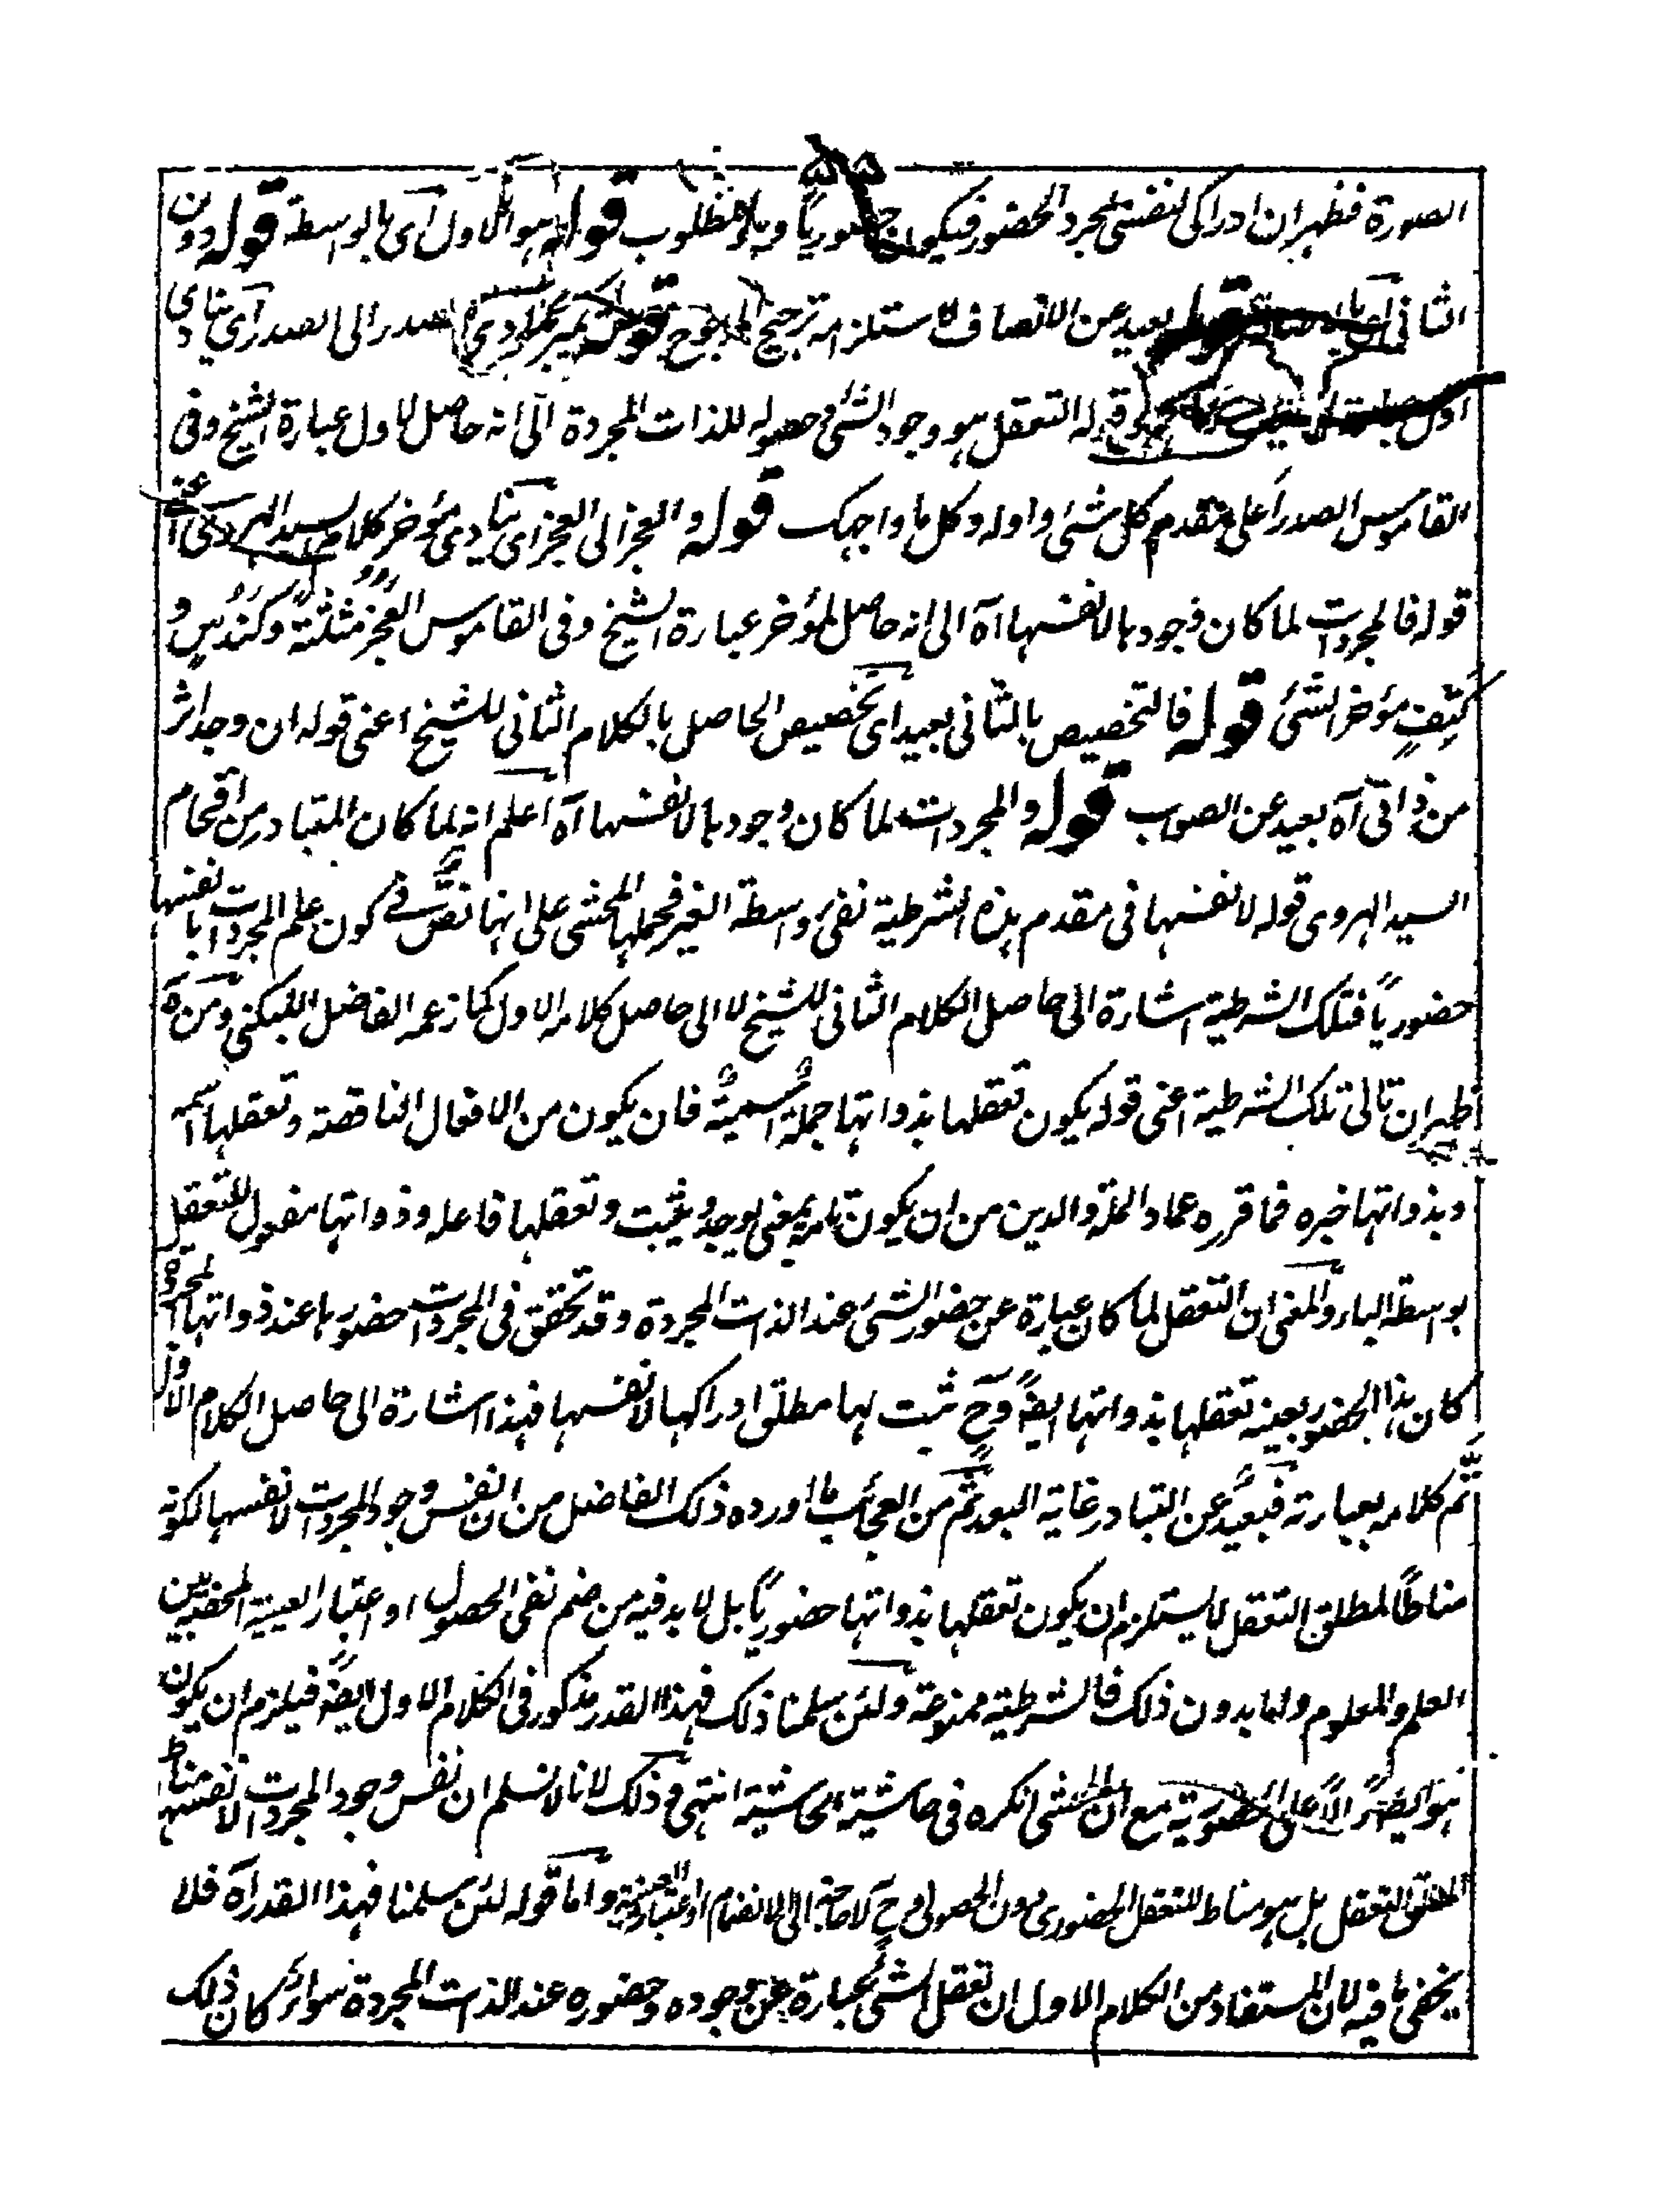 ٥٥
الصورة فظهر ان ادراكى لنفسى لمجرد الحضور فيكون حضوريا وهو المطلوب قوله هو الاول اى بالواسطة قوله دون
الثانى بعيد عن الانصاف لاستلزامه ترجيح المرجوح قوله الصدر الى الصدر اى ينادى
اول قوله التعقل هو وجود الشئ وحصوله للذات المجردة الى انه حاصل لاول عبارة الشيخ وفى
القاموس الصدر اعلى مقدم كل شئ واوله وكل ما واجهك قوله والعجز الى العجز اى ينادى مؤخر كلام السيد الهروى اعنى
قوله فالمجردات لما كان وجودها لانفسها آه الى انه حاصل لمؤخر عبارة الشيخ وفى القاموس العجز مثلثة وكندس و
كتف مؤخر الشئ قوله فالتخصيص بالثانى بعيد اى تخصيص الحاصل بالكلام الثانى للشيخ اعنى قوله ان وجد اثر
من ذاتى آه بعيد عن الصواب قوله والمجردات لما كان وجودها لانفسها آه اعلم انه لما كان المتبادر من اقحام
السيد الهروى قوله لانفسها فى مقدم هذه الشرطية نفى واسطة الغير فحملها المحشى على انها نص فى كون علم المجردات بانفسها
حضوريا فتلك الشرطية اشارة الى حاصل الكلام الثانى للشيخ لا الى حاصل كلامه الاول كما زعمه الفاضل اللبكنى ومن ثمه
ظهر ان تالى تلك الشرطية اعنى قوله يكون تعقلها بذواتها جملة اسمية فان يكون من الافعال الناقصة وتعقلها اسمه
وبذواتها خبره فما قرره عماد الملة والدين من ان يكون تامة بمعنى يوجد ويثبت وتعقلها فاعله وذواتها مفعول للتعقل
بواسطة الباء والمعنى ان التعقل لما كان عبارة عن حضور الشئ عند الذات المجردة وقد تحقق فى المجردات حضورها عند ذواتها المجردة
كان هذا الحضور بعينه تعقلها بذواتها ايضا وح ثبت لها مطلق ادراكها لانفسها فهذا اشارة الى حاصل الكلام الاول
تم كلامه بعبارته فبعيد عن التبادر غاية البعد ثم من العجائب ما اورده ذلك الفاضل من ان نفس وجود المجردات لانفسها لكونه
مناطا لمطلق التعقل لا يستلزم ان يكون تعقلها بذواتها حضوريا بل لا بد فيه من ضم نفى الحصول او اعتبار العينية الحقيقة بين
العلم والمعلوم واما بدون ذلك فالشرطية ممنوعة ولئن سلمنا ذلك فهذا القدر مذكور فى الكلام الاول ايضا فيلزم ان يكون
هو ايضا دالا على الحضورية مع ان المحشى انكره فى حاشية الحاشية انتهى وذلك لانا لا نسلم ان نفس وجود المجردات لانفسها مناط
لمطلق التعقل بل هو مناط للتعقل الحضورى دون الحصولى وح لا حاجة الى الانضمام او اعتبار العينية واما قوله لئن سلمنا فهذا القدر آه فلا
يخفى ما فيه لان المستفاد من الكلام الاول ان تعقل الشئ عبارة عن وجوده وحضوره عند الذات المجردة سواء كان ذلك